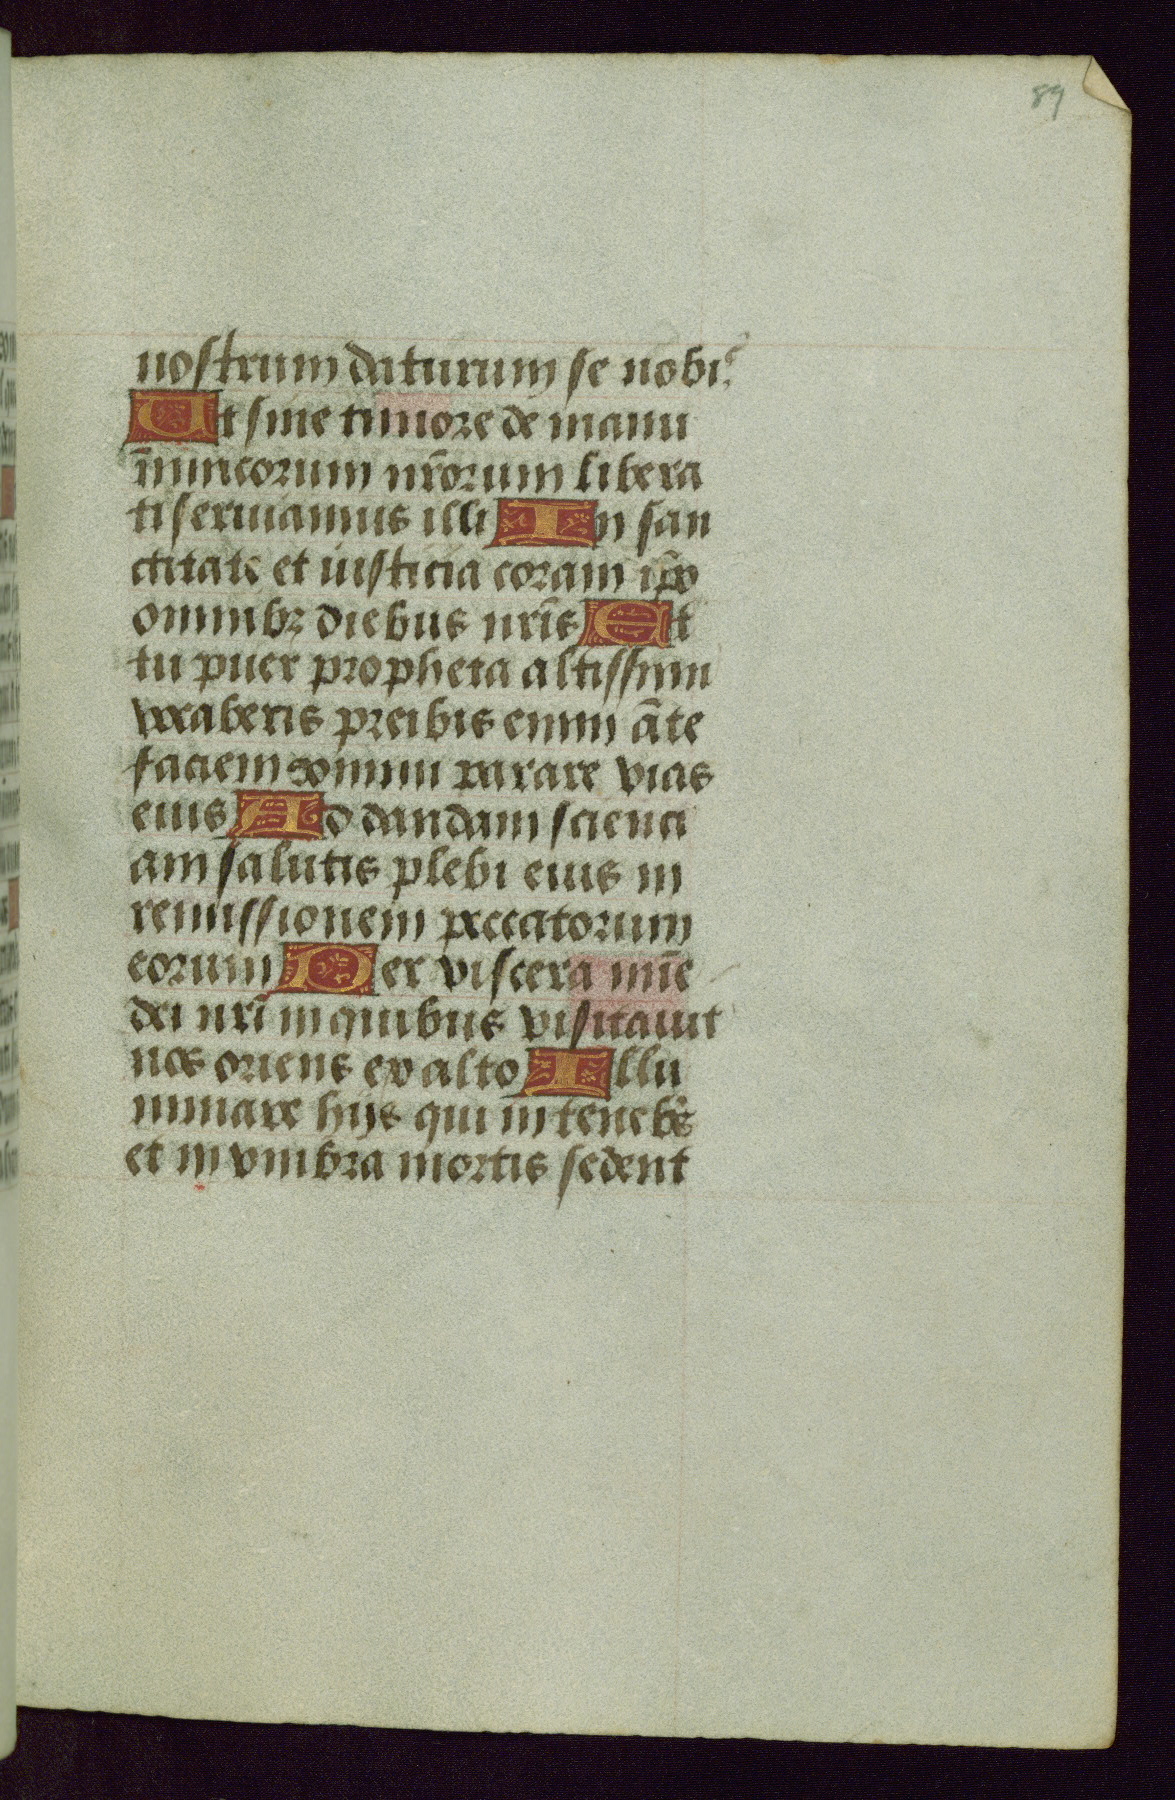 89
nostrum daturum se nobis
Ut sine timore de manu
īnimicorum nr̄orum libera
ti seruiamus illi In san
ctitate et iusticia coram ip̄o
omnibꝫ diebus nr̄is Et
tu puer propheta altissimi
vocaberis preibis enim ān̄te
faciem domini parare vias
eius Ad dandam scienci
am salutis plebi eius in
remissionem peccatorum
eorum Per viscera mīe
dei nr̄i in quibus visitauit
nos oriens ex alto Illu
minare hijs qui in tenebr̄s
et in vmbra mortis sedent